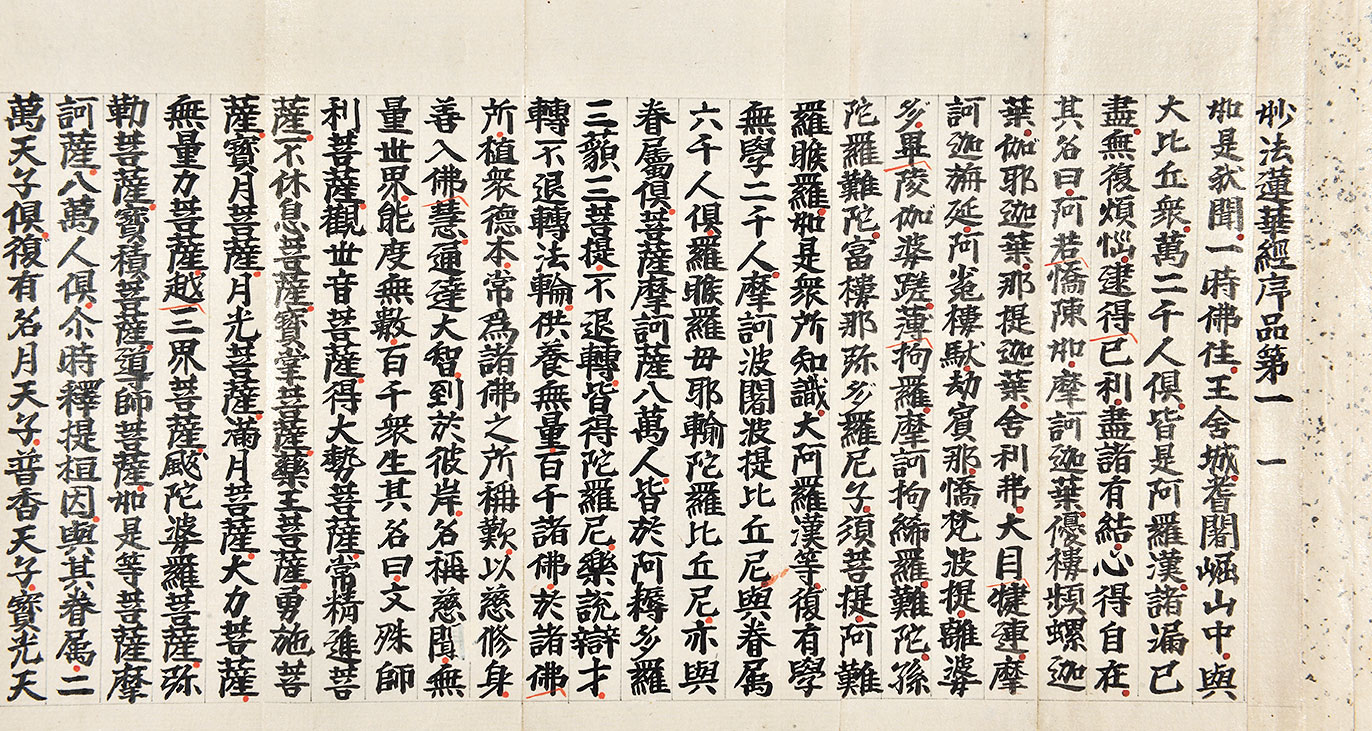 妙法蓮華經序品第一 一
如是我聞一時佛住王舍城耆闍崛山中與
大比丘衆萬二千人俱皆是阿羅漢諸漏已
盡無復煩惱逮得已利盡諸有結心得自在
其名曰阿若憍陳如摩訶迦葉優樓頻螺迦
葉伽耶迦葉那提迦葉舍利弗大目犍連摩
訶迦旃延阿㝹樓馱劫賓那憍梵波提離婆
多畢陵伽婆蹉薄拘羅摩訶拘絺羅難陀孫
陀羅難陀富樓那弥多羅尼子須菩提阿難
羅睺羅如是衆所知識大阿羅漢等復有學
無學二千人摩訶波闍波提比丘尼與眷属
六千人俱羅睺羅母耶輸陀羅比丘尼亦與
眷屬俱菩薩摩訶薩八萬人皆於阿耨多羅
三藐三菩提不退轉皆得陀羅尼樂說辯才
轉不退轉法輪供養無量百千諸佛於諸佛
所植衆德本常爲諸佛之所稱歎以慈修身
善入佛慧通達大智到於彼岸名稱慈聞無
量世界能度無數百千衆生其名曰文殊師
利菩薩觀世音菩薩得大勢菩薩常精進菩
薩不休息菩薩寶掌菩薩藥王菩薩勇施菩
薩寶月菩薩月光菩薩滿月菩薩大力菩薩
無量力菩薩越三界菩薩颰陀婆羅菩薩弥
勒菩薩寶積菩薩導師菩薩如是等菩薩摩
訶薩八萬人俱尒時釋提桓因與其眷属二
萬天子俱復有名月天子普香天子寶光天